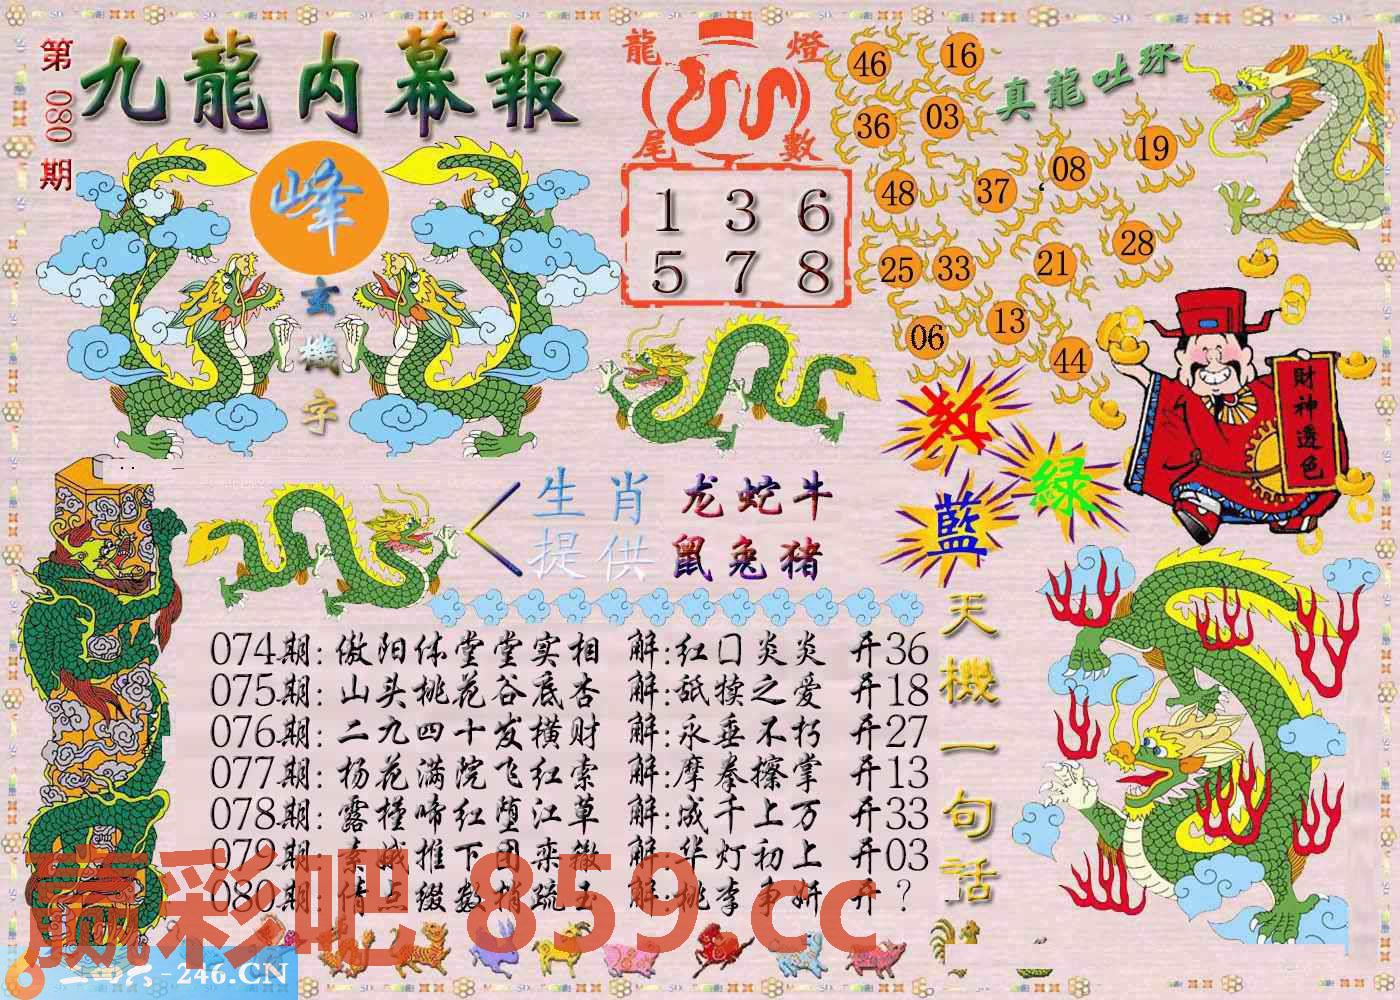 第080期
九龍内幕報
峰
玄機字
龍燈
尾數
1 3 6
5 7 8
真龍吐珠
46 16
36 03
48 37 08 19
25 33 21 28
06 13 44
財神透色
紅
綠
藍
生肖
提供
龙蛇牛
鼠兔猪
天機一句話
074期:傲阳体堂堂实相 解:红口炎炎 开36
075期:山头桃花谷底杏 解:舐犊之爱 开18
076期:二九四十发横财 解:永垂不朽 开27
077期:杨花满院飞红索 解:摩拳擦掌 开13
078期:露槿啼红堕江草 解:成千上万 开33
079期:素娥推下团栾辙 解:华灯初上 开03
080期:倩点缀数梢疏玉 解:桃李争妍 开?
赢彩吧 859.cc
二四六-246.CN